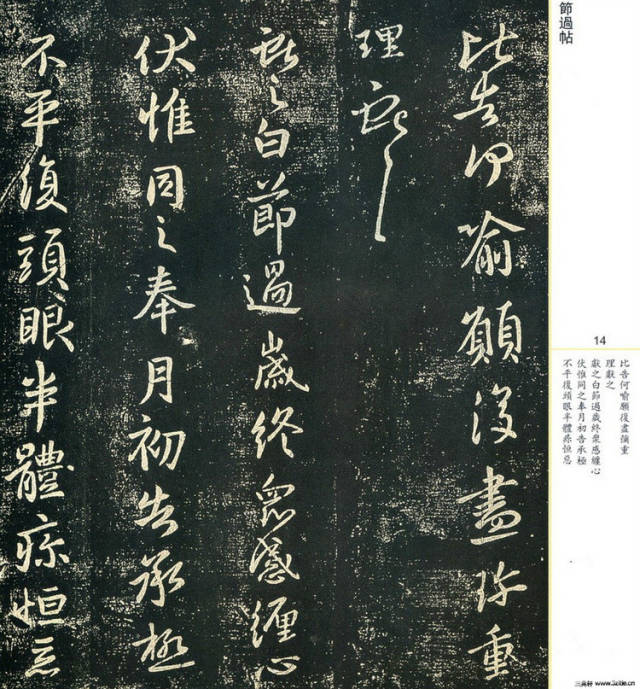 節過帖
比告何喻願復盡珍重
理獻之
獻之白節過歲終衆感纏心
伏惟同之奉月初告承極
不平復頭眼半體疼恒忌
14
比告何喻願復盡彌重
理獻之
獻之白節過歲終衆感纏心
伏惟同之奉月初告承極
不平復頭眼半體疼恒忌
www.3zitie.cn